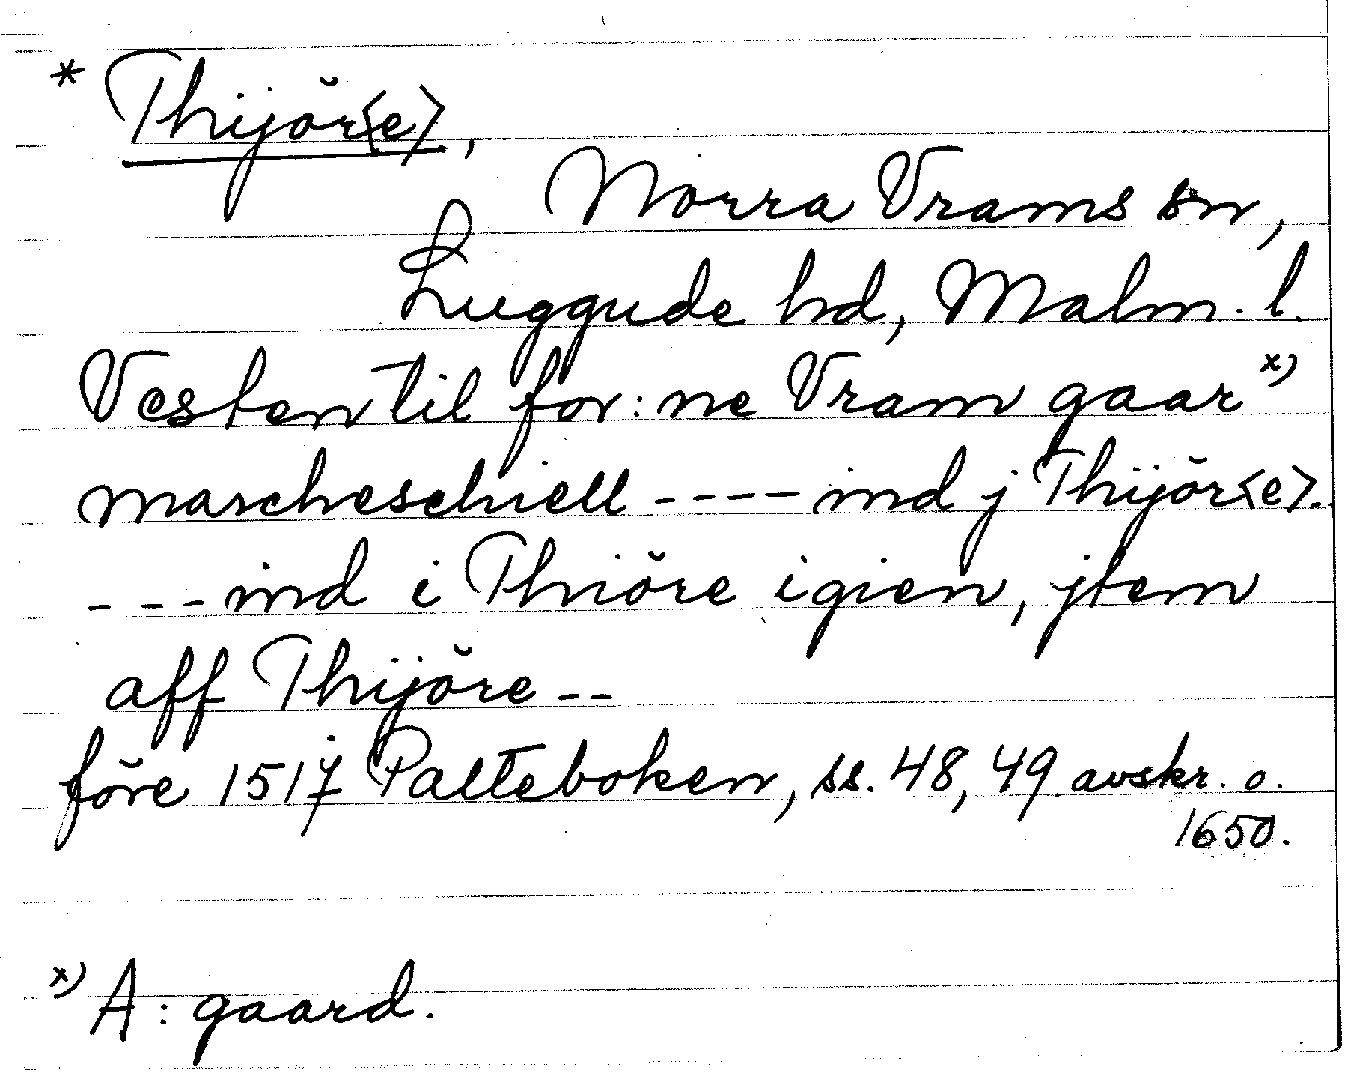 * Thijör⟨e⟩,
Norra Vrams sn,
Luggude hd, Malm. l.
Vesten til for: ne Vram gaar x)
marcheschiell ---- ind j Thijör⟨e⟩.
--- ind i Thiöre igien, jtem
aff Thijöre --
före 1517 Palteboken, ss. 48, 49 avskr. o.
1650.
x) A: gaard.